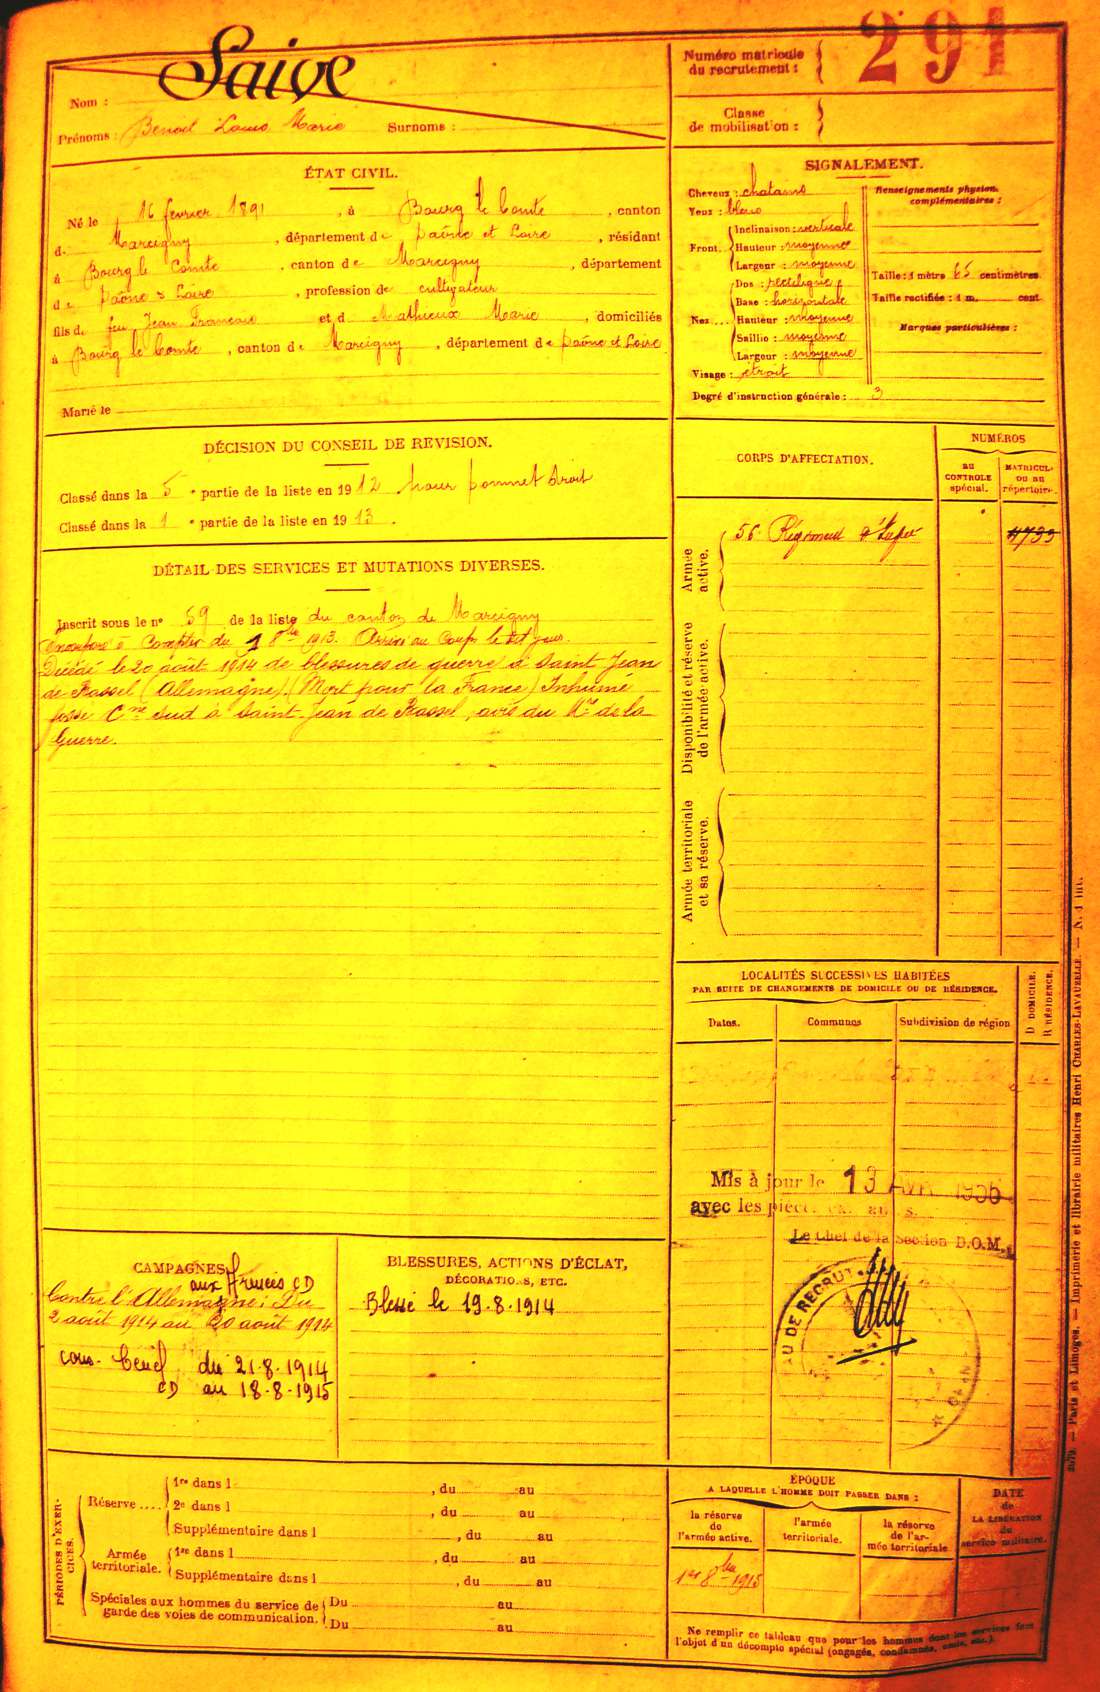 Numéro matricule du recrutement : 291
Classe de mobilisation :
Nom : Saive
Prénoms : Benoit Louis Marie Surnoms :
ÉTAT CIVIL.
Né le 16 février 1891, à Bourg le Comte, canton
de Marcigny, département de Saône et Loire, résidant
à Bourg le Comte, canton de Marcigny, département
de Saône & Loire, profession de cultivateur
fils de feu Jean Francois et d Mathieux Marie, domiciliés
à Bourg le Comte, canton de Marcigny, département de Saône et Loire
Marié le
SIGNALEMENT.
Cheveux : chatains
Yeux : bleus
Front. Inclinaison : verticale
Hauteur : moyenne
Largeur : moyenne
Nez... Dos : rectiligne
Base : horizontale
Hauteur : moyenne
Saillie : moyenne
Largeur : moyenne
Visage : étroit
Renseignements physion. complémentaires :
Taille : 1 mètre 65 centimètres.
Taille rectifiée : 1 m. cent.
Marques particulières :
Degré d'instruction générale : 3
DÉCISION DU CONSEIL DE REVISION.
Classé dans la 5e partie de la liste en 1912 pommet droit
Classé dans la 1e partie de la liste en 1913.
DÉTAIL DES SERVICES ET MUTATIONS DIVERSES.
Inscrit sous le n° 59 de la liste du canton de Marcigny
Incorporé à Compter du 1 8bre 1913. Arrivé au Corps le dit jour.
Décédé le 20 août 1914 de blessures de guerre à Saint Jean
de Bassel (Allemagne). (Mort pour la France) Inhumé
fosse Cne Sud à Saint-Jean de Bassel, avis du Mre de la
Guerre.
CORPS D'AFFECTATION.
NUMÉROS
AU CONTROLE spécial.
MATRICULE OU AU répertoire.
Armée active.
56e Régiment d'Infrie 4733
Disponibilité et réserve de l'armée active.
Armée territoriale et sa réserve.
LOCALITÉS SUCCESSIVES HABITÉES
PAR SUITE DE CHANGEMENTS DE DOMICILE OU DE RÉSIDENCE.
Dates. Communes Subdivision de région
D DOMICILE. R RÉSIDENCE.
Mis à jour le 13 AVR
avec les pièces
Le Chef de la Section D.O.M.
AU DE RECRUT
CAMPAGNES
aux Armées CD
Contre l'Allemagne : Du
2 août 1914 au 20 août 1914
du 21-8-1914
CD au 18-8-1915
BLESSURES, ACTIONS D'ÉCLAT,
DÉCORATIONS, ETC.
Blessé le 19-8-1914
PÉRIODES D'EXERCICES.
Réserve .... 1re dans l , du au
2e dans l , du au
Supplémentaire dans l , du au
Armée territoriale. 1re dans l , du au
Supplémentaire dans l , du au
Spéciales aux hommes du service de garde des voies de communication. Du au
Du au
ÉPOQUE
A LAQUELLE L'HOMME DOIT PASSER DANS :
la réserve de l'armée active.
l'armée territoriale.
la réserve de l'armée territoriale
DATE de LA LIBÉRATION du service militaire.
1er 8bre 1915
Ne remplir ce tableau que pour les hommes dont les services font
l'objet d'un décompte spécial (engagés, condamnés, omis, etc.).
Paris et Limoges. — Imprimerie et librairie militaires Henri CHARLES-LAVAUZELLE. — N. 1 int.